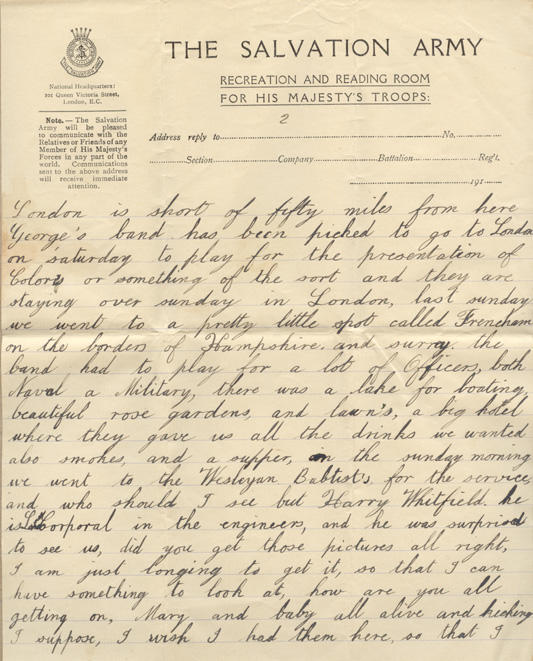 THE SALVATION ARMY
RECREATION AND READING ROOM
FOR HIS MAJESTY'S TROOPS:
National Headquarters:
101 Queen Victoria Street,
London, E.C.
Note.—The Salvation
Army will be pleased
to communicate with the
Relatives or Friends of any
Member of His Majesty's
Forces in any part of the
world. Communications
sent to the above address
will receive immediate
attention.
2
Address reply to No.
Section Company Battalion Regt.
191
London is short of fifty miles from here
George's band has been picked to go to London
on saturday to play for the presentation of
Colors or something of the sort and they are
staying over sunday in London, last sunday
we went to a pretty little spot called Frencham
on the borders of Hampshire and surry. the
band had to play for a lot of Officers, both
Naval a Military, there was a lake for boating,
beautiful rose gardens, and lawn's, a big hotel
where they gave us all the drinks we wanted
also smokes, and a supper, on the sunday morning
we went to the Wesleyan Babtist's, for the service,
and who should I see but Harry Whitfield. he
is L Corporal in the engineers, and he was surprised
to see us, did you get those pictures all right,
I am just longing to get it, so that I can
have something to look at, how are you all
getting on, Mary and baby all alive and kicking
I suppose, I wish I had them here, so that I